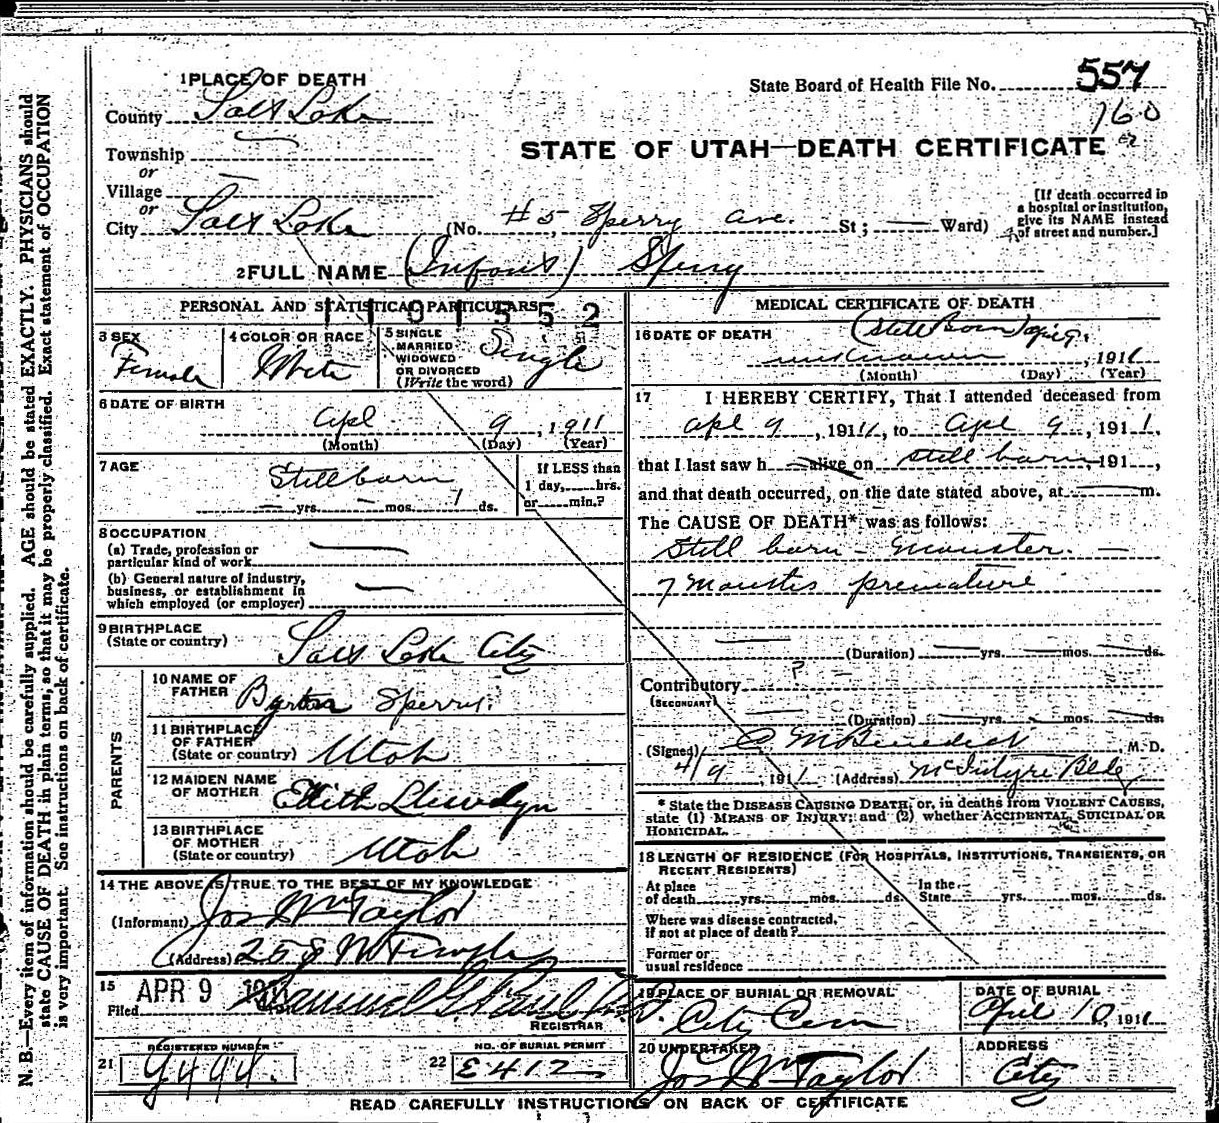 N. B.—Every item of information should be carefully supplied. AGE should be stated EXACTLY. PHYSICIANS should
state CAUSE OF DEATH in plain terms, so that it may be properly classified. Exact statement of OCCUPATION
is very important. See instructions on back of certificate.
1 PLACE OF DEATH
State Board of Health File No. 557
County Salt Lake
160
STATE OF UTAH—DEATH CERTIFICATE
Township
or
Village
or
City Salt Lake (No. #5 Sperry Ave. St; Ward)
[If death occurred in
a hospital or institution,
give its NAME instead
of street and number.]
2 FULL NAME (Infant) Sperry
PERSONAL AND STATISTICAL PARTICULARS
1191552
3 SEX
Female
4 COLOR OR RACE
White
5 SINGLE
MARRIED
WIDOWED
OR DIVORCED
(Write the word)
Single
6 DATE OF BIRTH
Apl 9, 1911
(Month) (Day) (Year)
7 AGE
Stillborn
yrs. mos. ds.
If LESS than
1 day, hrs.
or min.?
8 OCCUPATION
(a) Trade, profession or
particular kind of work
(b) General nature of industry,
business, or establishment in
which employed (or employer)
9 BIRTHPLACE
(State or country) Salt Lake City
PARENTS
10 NAME OF
FATHER Byron Sperry
11 BIRTHPLACE
OF FATHER
(State or country) Utah
12 MAIDEN NAME
OF MOTHER Edith Llewelyn
13 BIRTHPLACE
OF MOTHER
(State or country) Utah
14 THE ABOVE IS TRUE TO THE BEST OF MY KNOWLEDGE
(Informant) Jos Wm Taylor
(Address) 258 N Temple
15
Filed APR 9 191 Samuel G. Paul
REGISTRAR
21 REGISTERED NUMBER
22 NO. OF BURIAL PERMIT
E412
MEDICAL CERTIFICATE OF DEATH
16 DATE OF DEATH (Still Born)
unknown, 1911
(Month) (Day) (Year)
17 I HEREBY CERTIFY, That I attended deceased from
Apl 9, 1911, to Apl 9, 1911,
that I last saw h alive on still born, 191 ,
and that death occurred, on the date stated above, at m.
The CAUSE OF DEATH* was as follows:
Still born - Monster.
7 Months premature
(Duration) yrs. mos. ds.
Contributory ?
(SECONDARY)
(Duration) yrs. mos. ds.
(Signed) C M Benedict M. D.
4/9, 1911 (Address) McIntyre Bldg
* State the DISEASE CAUSING DEATH, or, in deaths from VIOLENT CAUSES,
state (1) MEANS OF INJURY; and (2) whether ACCIDENTAL, SUICIDAL OR
HOMICIDAL.
18 LENGTH OF RESIDENCE (FOR HOSPITALS, INSTITUTIONS, TRANSIENTS, OR
RECENT RESIDENTS)
At place
of death yrs. mos. ds.
In the
State yrs. mos. ds.
Where was disease contracted,
If not at place of death?
Former or
usual residence
19 PLACE OF BURIAL OR REMOVAL
City Cem
DATE OF BURIAL
April 10, 1911
20 UNDERTAKER
Jos Wm Taylor
ADDRESS
City
READ CAREFULLY INSTRUCTIONS ON BACK OF CERTIFICATE